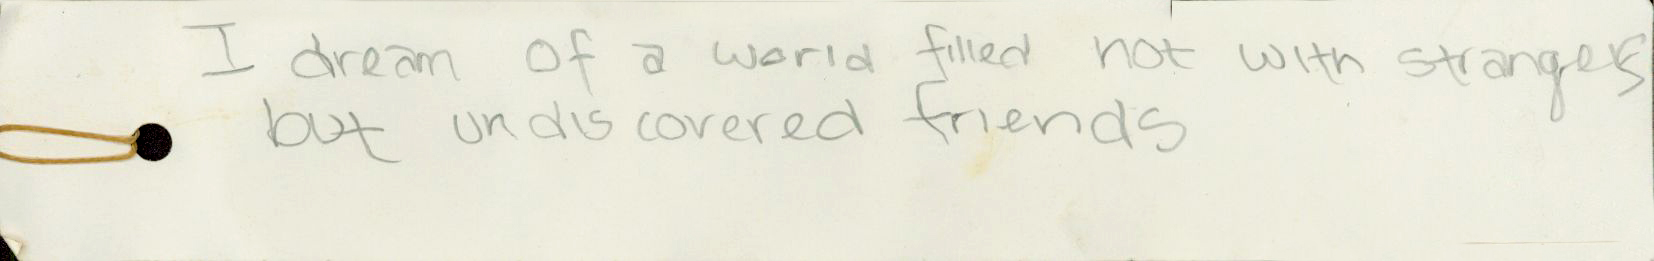 I dream of a world filled not with strangers
but undiscovered friends